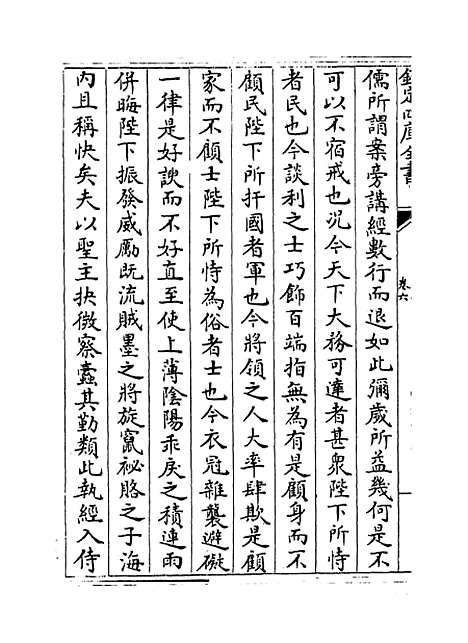 欽定四庫全書
卷六
儒所謂案旁講經數行而退如此彌歲所益幾何是不
可以不宿戒也況今天下大務可達者甚衆陛下所恃
者民也今談利之士巧飾百端指無為有是顧身而不
顧民陛下所扞國者軍也今將領之人大率肆欺是顧
家而不顧士陛下所恃為俗者士也今衣冠雜襲避礙
一律是好諛而不好直至使上薄陰陽乖戾之積連雨
併晦陛下振發威勵既流賊墨之將旋竄祕賂之子海
内且稱快矣夫以聖主抉微察蠹其勤類此執經入侍